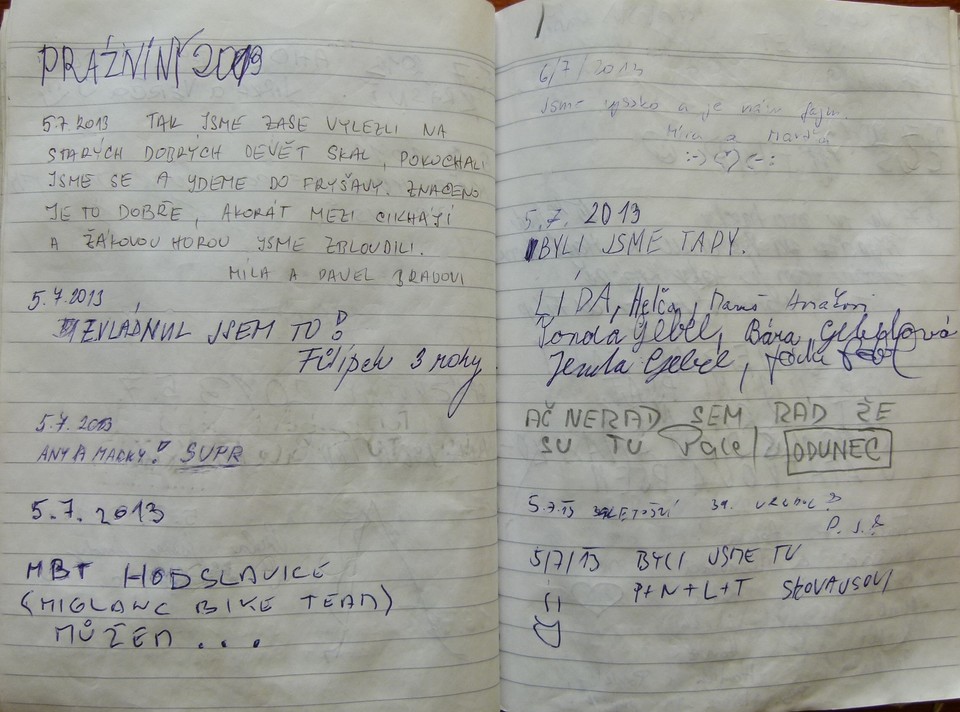 PRÁZNINY 2013
5.7.2013 TAK JSME ZASE VYLEZLI NA
STARÝCH DOBRÝCH DEVĚT SKAL, POKOCHALI
JSME SE A YDEME DO FRYŠAVY. ZNAČENO
JE TO DOBŘE, AKORÁT MEZI CIKHÁJÍ
A ŽÁKOVOU HOROU JSME ZBLOUDILI.
MÍLA A PAVEL BRADOVI
5.7.2013
ZVLÁDNUL JSEM TO!
Filípek 3 roky
5.7.2013
ANY A MARKY! SUPR
5.7.2013
MBT HODSLAVICE
(MIGLANC BIKE TEAM)
MŮŽEM ...
6/7/2013
Jsme vysoko a je nám fajn
Míra a Martin
:-) ♡ (-:
5.7.2013
BYLI JSME TADY.
LÍDA, Helča,
Bára
Jenda
AČ NERAD SEM RÁD ŽE
SU TU ODUNEC
5.7.13 LETOŠNÍ 39.
5/7/13 BYLI JSME TU
P+N+L+T